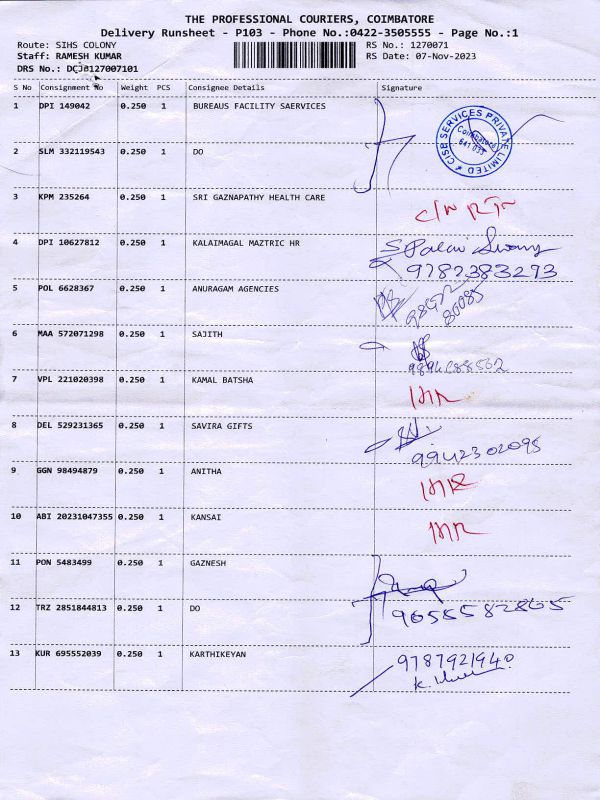 THE PROFESSIONAL COURIERS, COIMBATORE
Delivery Runsheet - P103 - Phone No.:0422-3505555 - Page No.:1
Route: SIHS COLONY RS No.: 1270071
Staff: RAMESH KUMAR RS Date: 07-Nov-2023
DRS No.: DCJ0127007101
S No Consignment No Weight PCS Consignee Details Signature
1 DPI 149042 0.250 1 BUREAUS FACILITY SAERVICES
CISB SERVICES PRIVATE LIMITED
Coimbatore
641 033
2 SLM 332119543 0.250 1 DO
3 KPM 235264 0.250 1 SRI GAZNAPATHY HEALTH CARE
4 DPI 10627812 0.250 1 KALAIMAGAL MAZTRIC HR
9782383293
5 POL 6628367 0.250 1 ANURAGAM AGENCIES
80085
6 MAA 572071298 0.250 1 SAJITH
7 VPL 221020398 0.250 1 KAMAL BATSHA
8 DEL 529231365 0.250 1 SAVIRA GIFTS
9942302095
9 GGN 98494879 0.250 1 ANITHA
10 ABI 20231047355 0.250 1 KANSAI
11 PON 5483499 0.250 1 GAZNESH
12 TRZ 2851844813 0.250 1 DO
9655582805
13 KUR 695552039 0.250 1 KARTHIKEYAN
9787921940.